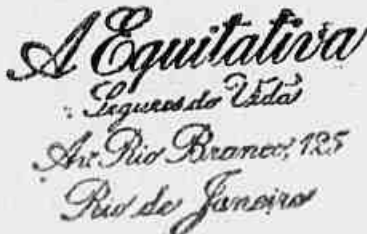 A Equitativa
Seguros do Vida
Av. Rio Branco, 125
Rio de Janeiro